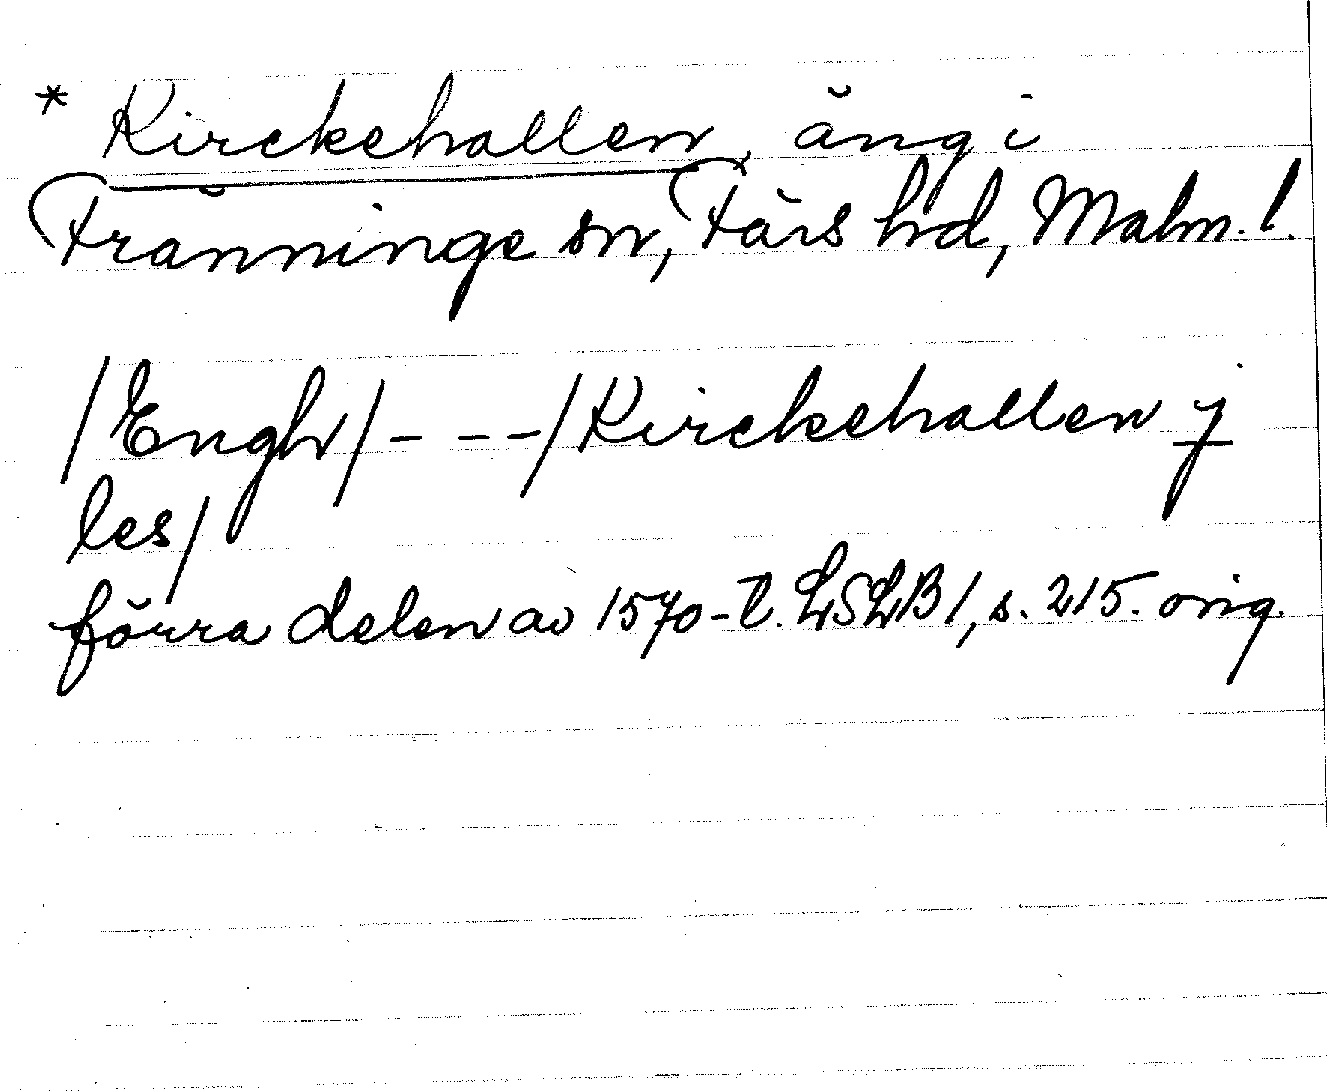 * Kirckehallen, äng i
Fränninge sn, Färs hd, Malm. l.
/Engh/ - - - /Kirckehallen j
les/
förra delen av 1570-t. LSLB 1, s. 215. orig.